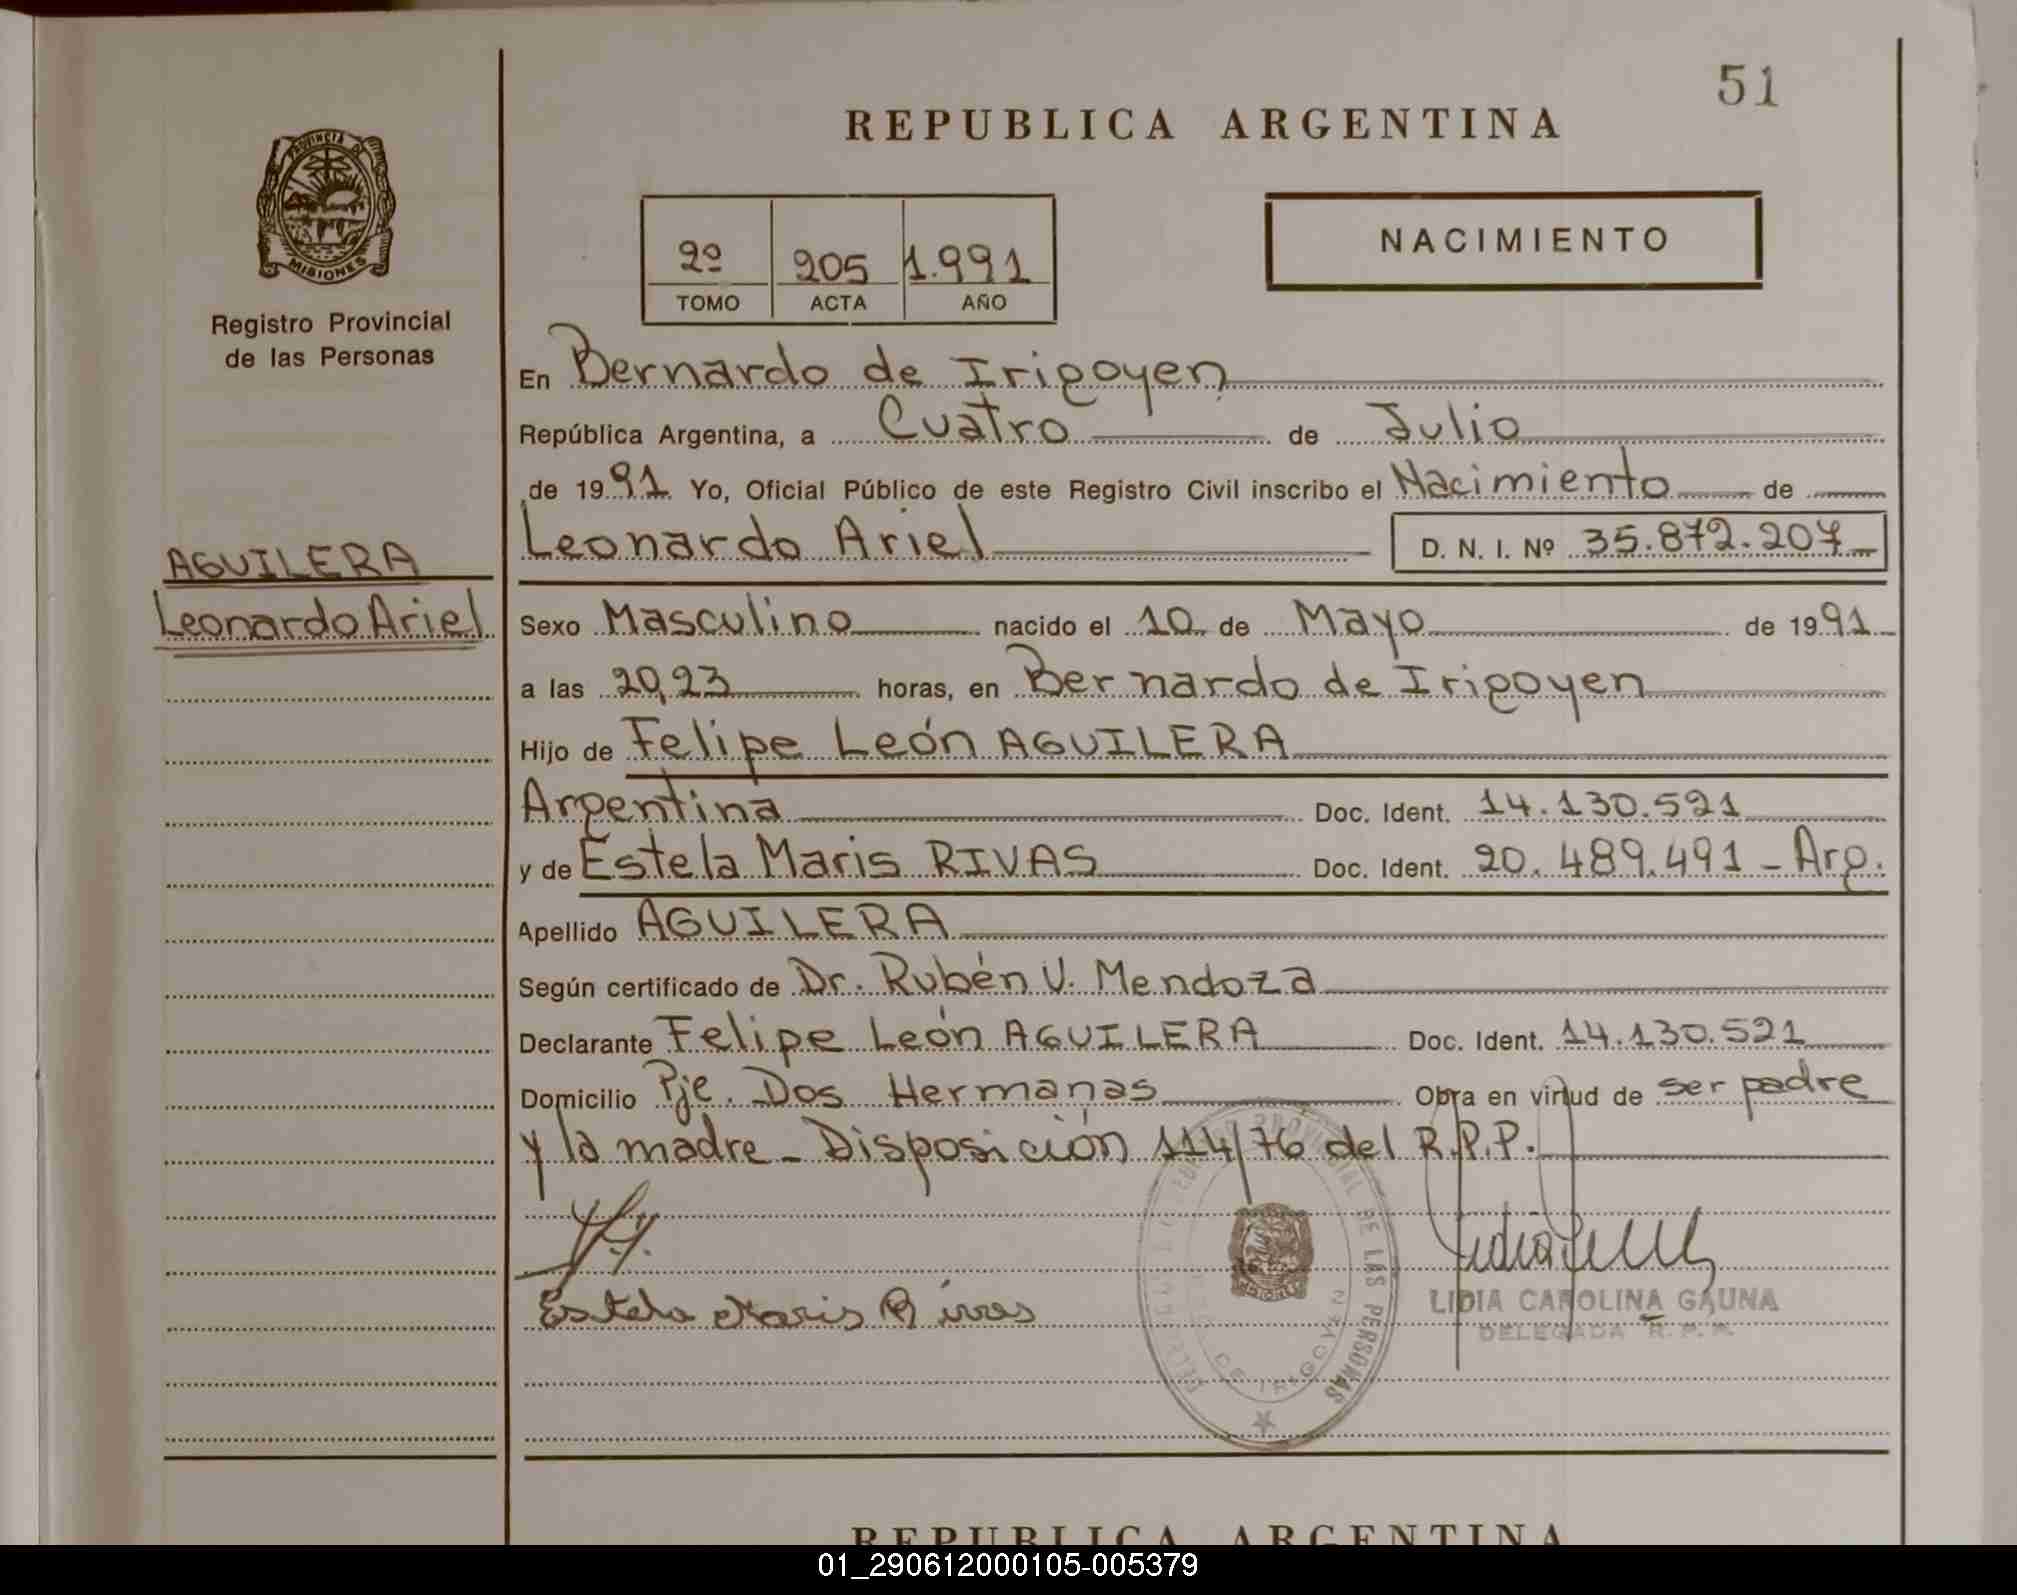 51
REPUBLICA ARGENTINA
PROVINCIA DE
MISIONES
Registro Provincial
de las Personas
2º 205 1.991
TOMO ACTA AÑO
NACIMIENTO
En Bernardo de Irigoyen
República Argentina, a Cuatro de Julio
de 1991 Yo, Oficial Público de este Registro Civil inscribo el Nacimiento de
Leonardo Ariel D. N. I. Nº 35.872.207
AGUILERA
Leonardo Ariel
Sexo Masculino nacido el 10 de Mayo de 1991
a las 20,23 horas, en Bernardo de Irigoyen
Hijo de Felipe León AGUILERA
Argentina Doc. Ident. 14.130.521
y de Estela Maris RIVAS Doc. Ident. 20.489.491 - Arg.
Apellido AGUILERA
Según certificado de Dr. Rubén V. Mendoza
Declarante Felipe León AGUILERA Doc. Ident. 14.130.521
Domicilio Pje. Dos Hermanas Obra en virtud de ser padre
y la madre - Disposición 114/76 del R.P.P.
Estela Maris Rivas
PROVINCIAL DE LAS PERSONAS
DE IRIGOYEN
MISIONES
LIDIA CAROLINA GAUNA
DELEGADA R. P. P.
REPUBLICA ARGENTINA
01_290612000105-005379